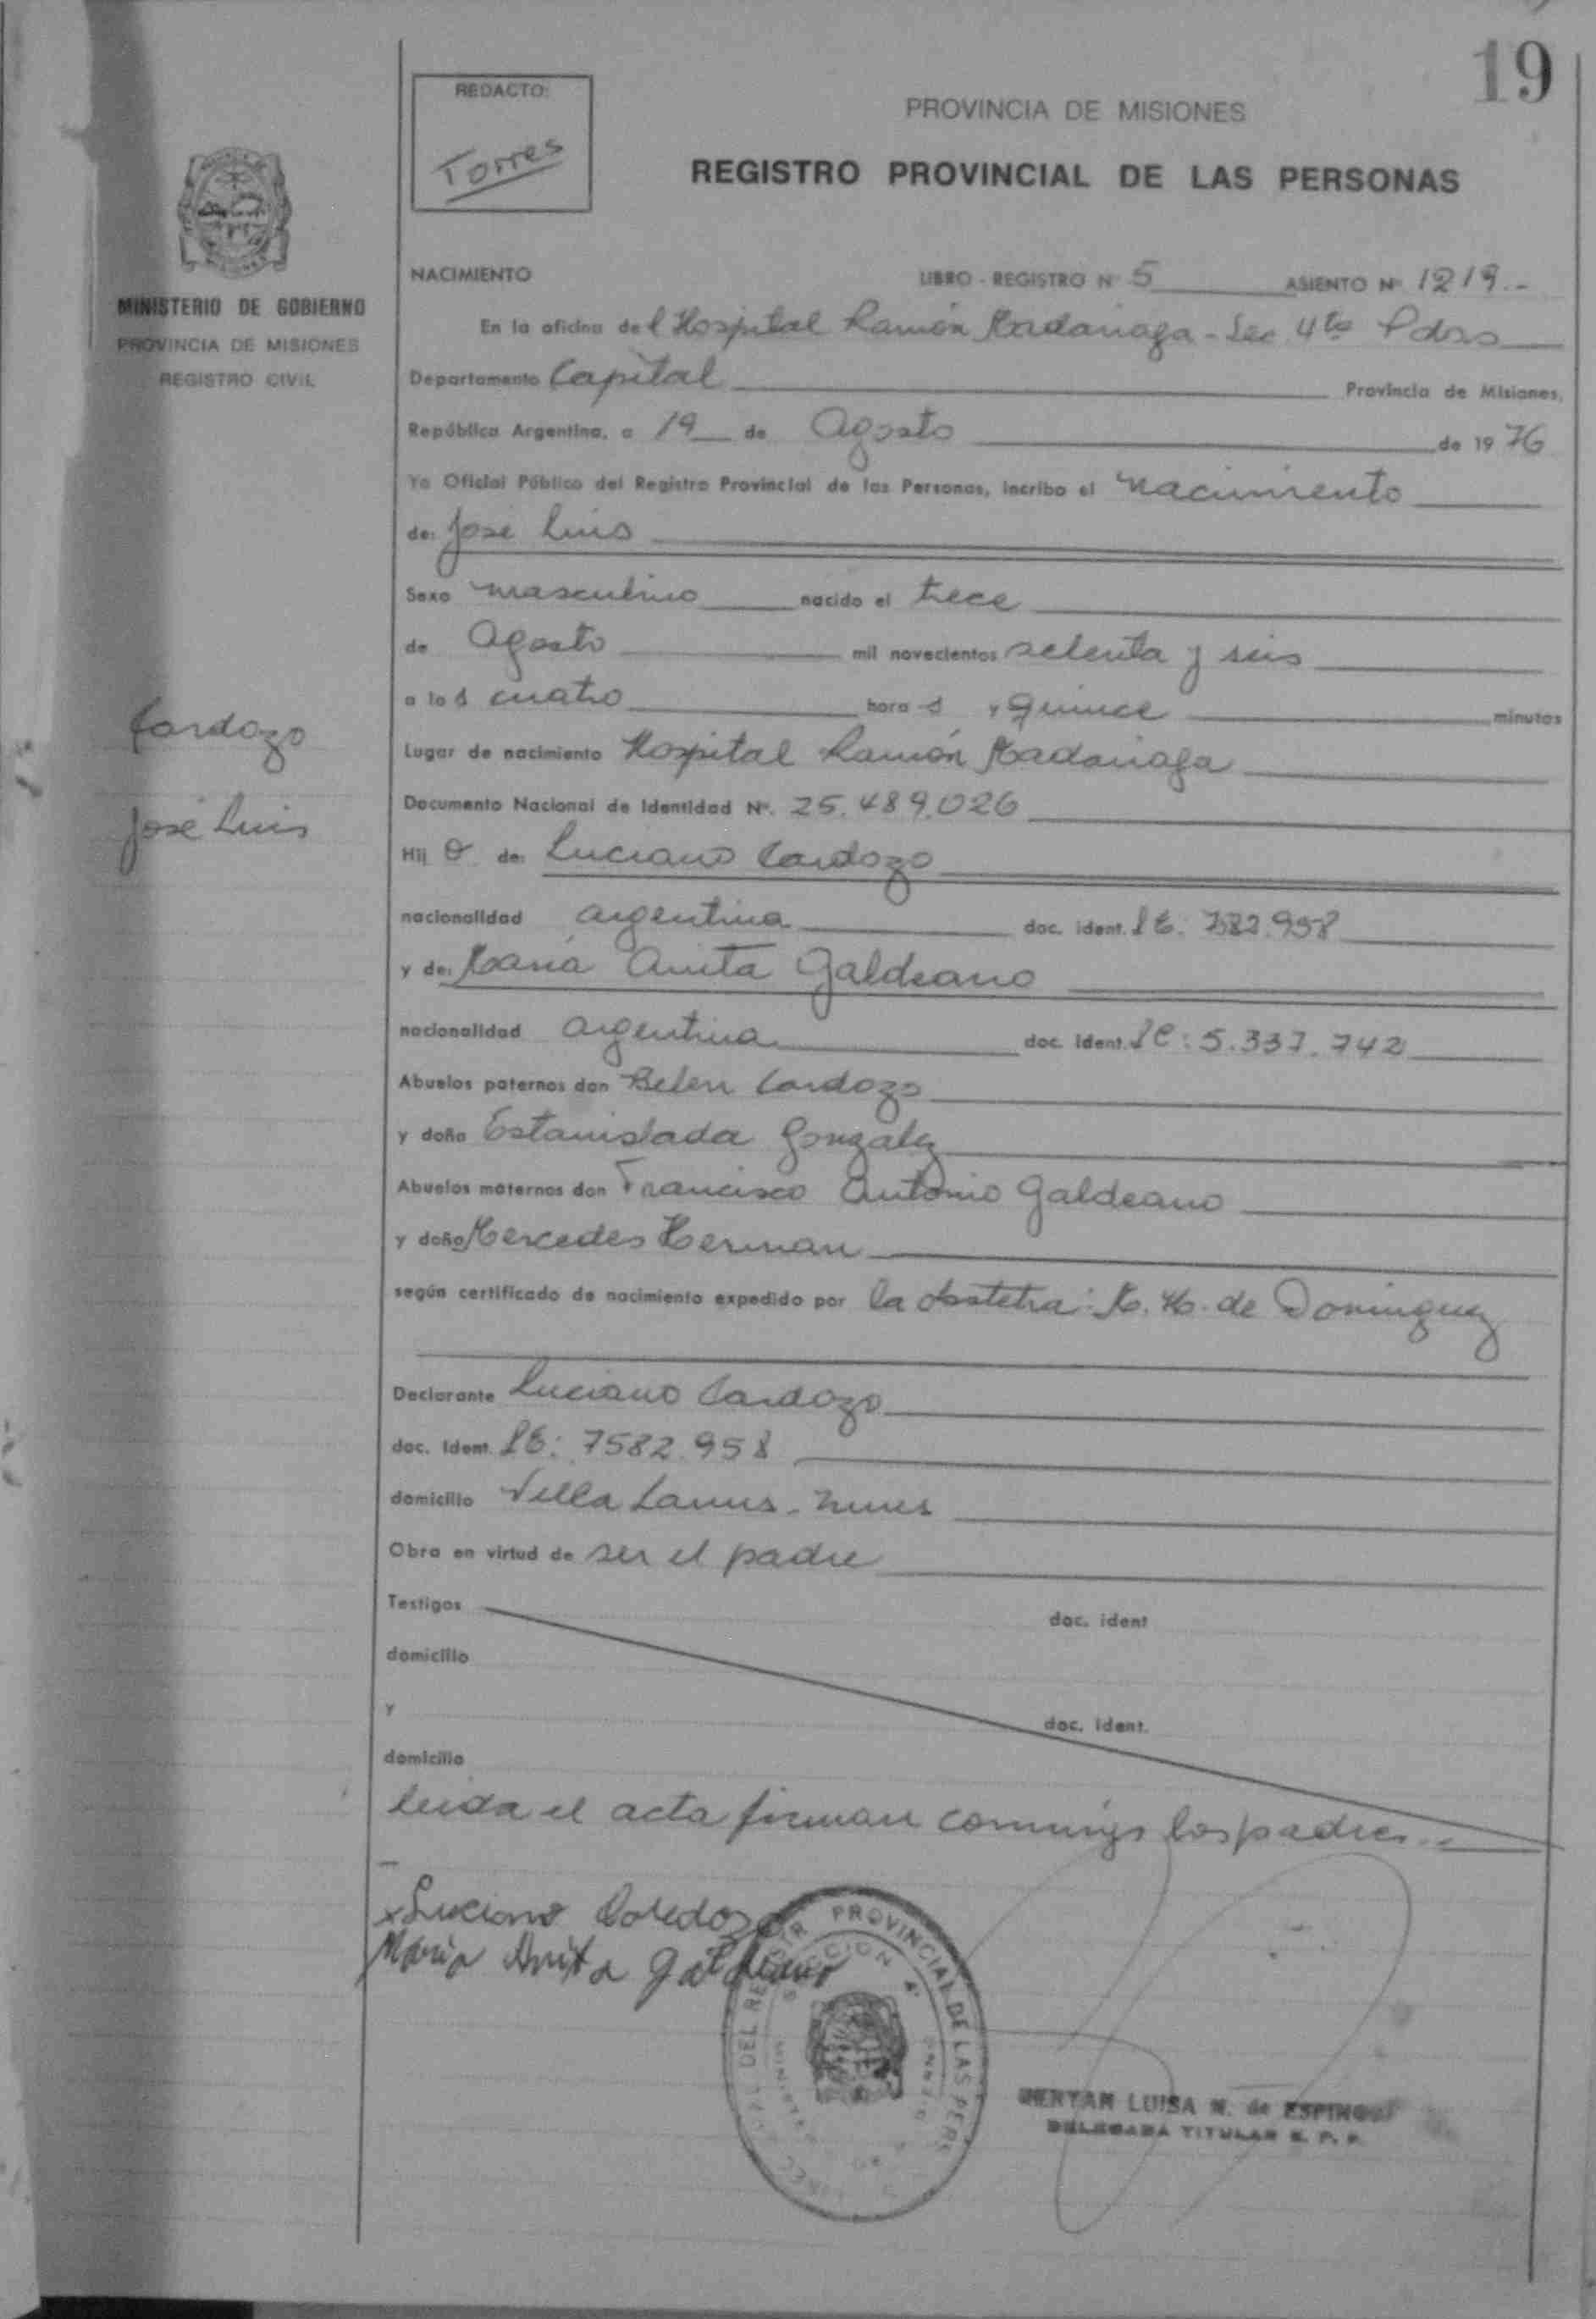 19
REDACTO:
Torres
PROVINCIA DE MISIONES
REGISTRO PROVINCIAL DE LAS PERSONAS
MINISTERIO DE GOBIERNO
PROVINCIA DE MISIONES
REGISTRO CIVIL
NACIMIENTO LIBRO - REGISTRO Nº 5 ASIENTO Nº 1219.-
En la oficina del Hospital Ramón Madariaga - Sec 4ta Pdas
Departamento Capital Provincia de Misiones,
República Argentina, a 19 de Agosto de 1976
Yo Oficial Público del Registro Provincial de las Personas, incribo el nacimiento
de: José Luis
Sexo masculino nacido el trece
de Agosto mil novecientos setenta y seis
a las cuatro horas y quince minutos
Cardozo
José Luis
Lugar de nacimiento Hospital Ramón Madariaga
Documento Nacional de Identidad Nº. 25.489.026
Hijo de: Luciano Cardozo
nacionalidad argentina doc. ident. LE: 7582.958
y de: María Anita Galdeano
nacionalidad argentina doc. ident. LC: 5.337.742
Abuelos paternos don Belen Cardozo
y doña Estanislada Gonzalez
Abuelos maternos don Francisco Antonio Galdeano
y doña Mercedes Herman
según certificado de nacimiento expedido por la obstetra: M. H. de Dominguez
Declarante Luciano Cardozo
doc. Ident. LE: 7582.958
domicilio Villa Lanus - Mnes
Obra en virtud de ser el padre
Testigos doc. ident
domicilio
y doc. ident.
domicilio
leida el acta firman conmigo los padres.-
x Luciano Cardozo
Maria Anita Galdeano
PROVINCIAL DE LAS PERS
SECCION 4ª
LUISA N. de
DELEGADA TITULAR R. P. P.